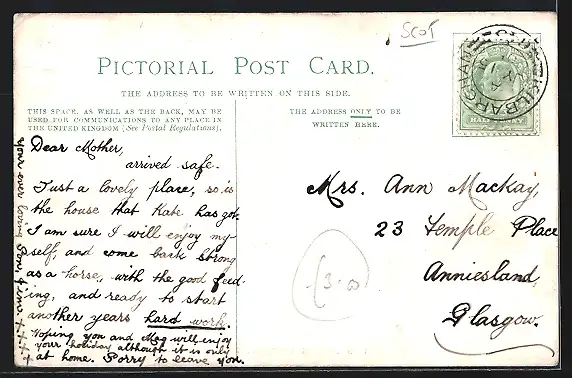 Scot
PICTORIAL POST CARD.
THE ADDRESS TO BE WRITTEN ON THIS SIDE.
THIS SPACE, AS WELL AS THE BACK, MAY BE
USED FOR COMMUNICATIONS TO ANY PLACE IN
THE UNITED KINGDOM (See Postal Regulations).
THE ADDRESS ONLY TO BE
WRITTEN HERE.
KILBARCHAN
HALFPENNY
Dear Mother,
arrived safe.
Just a lovely place, so is
the house that Kate has got.
I am sure I will enjoy my-
self, and come back strong
as a horse, with the good feed-
ing, and ready to start
another years hard work.
Hoping you and Mag will enjoy
your holiday although it is only
at home. Sorry to leave you.
your ever loving Son,
Mrs. Ann Mackay,
23 Temple Place
Anniesland,
Glasgow.
3.00